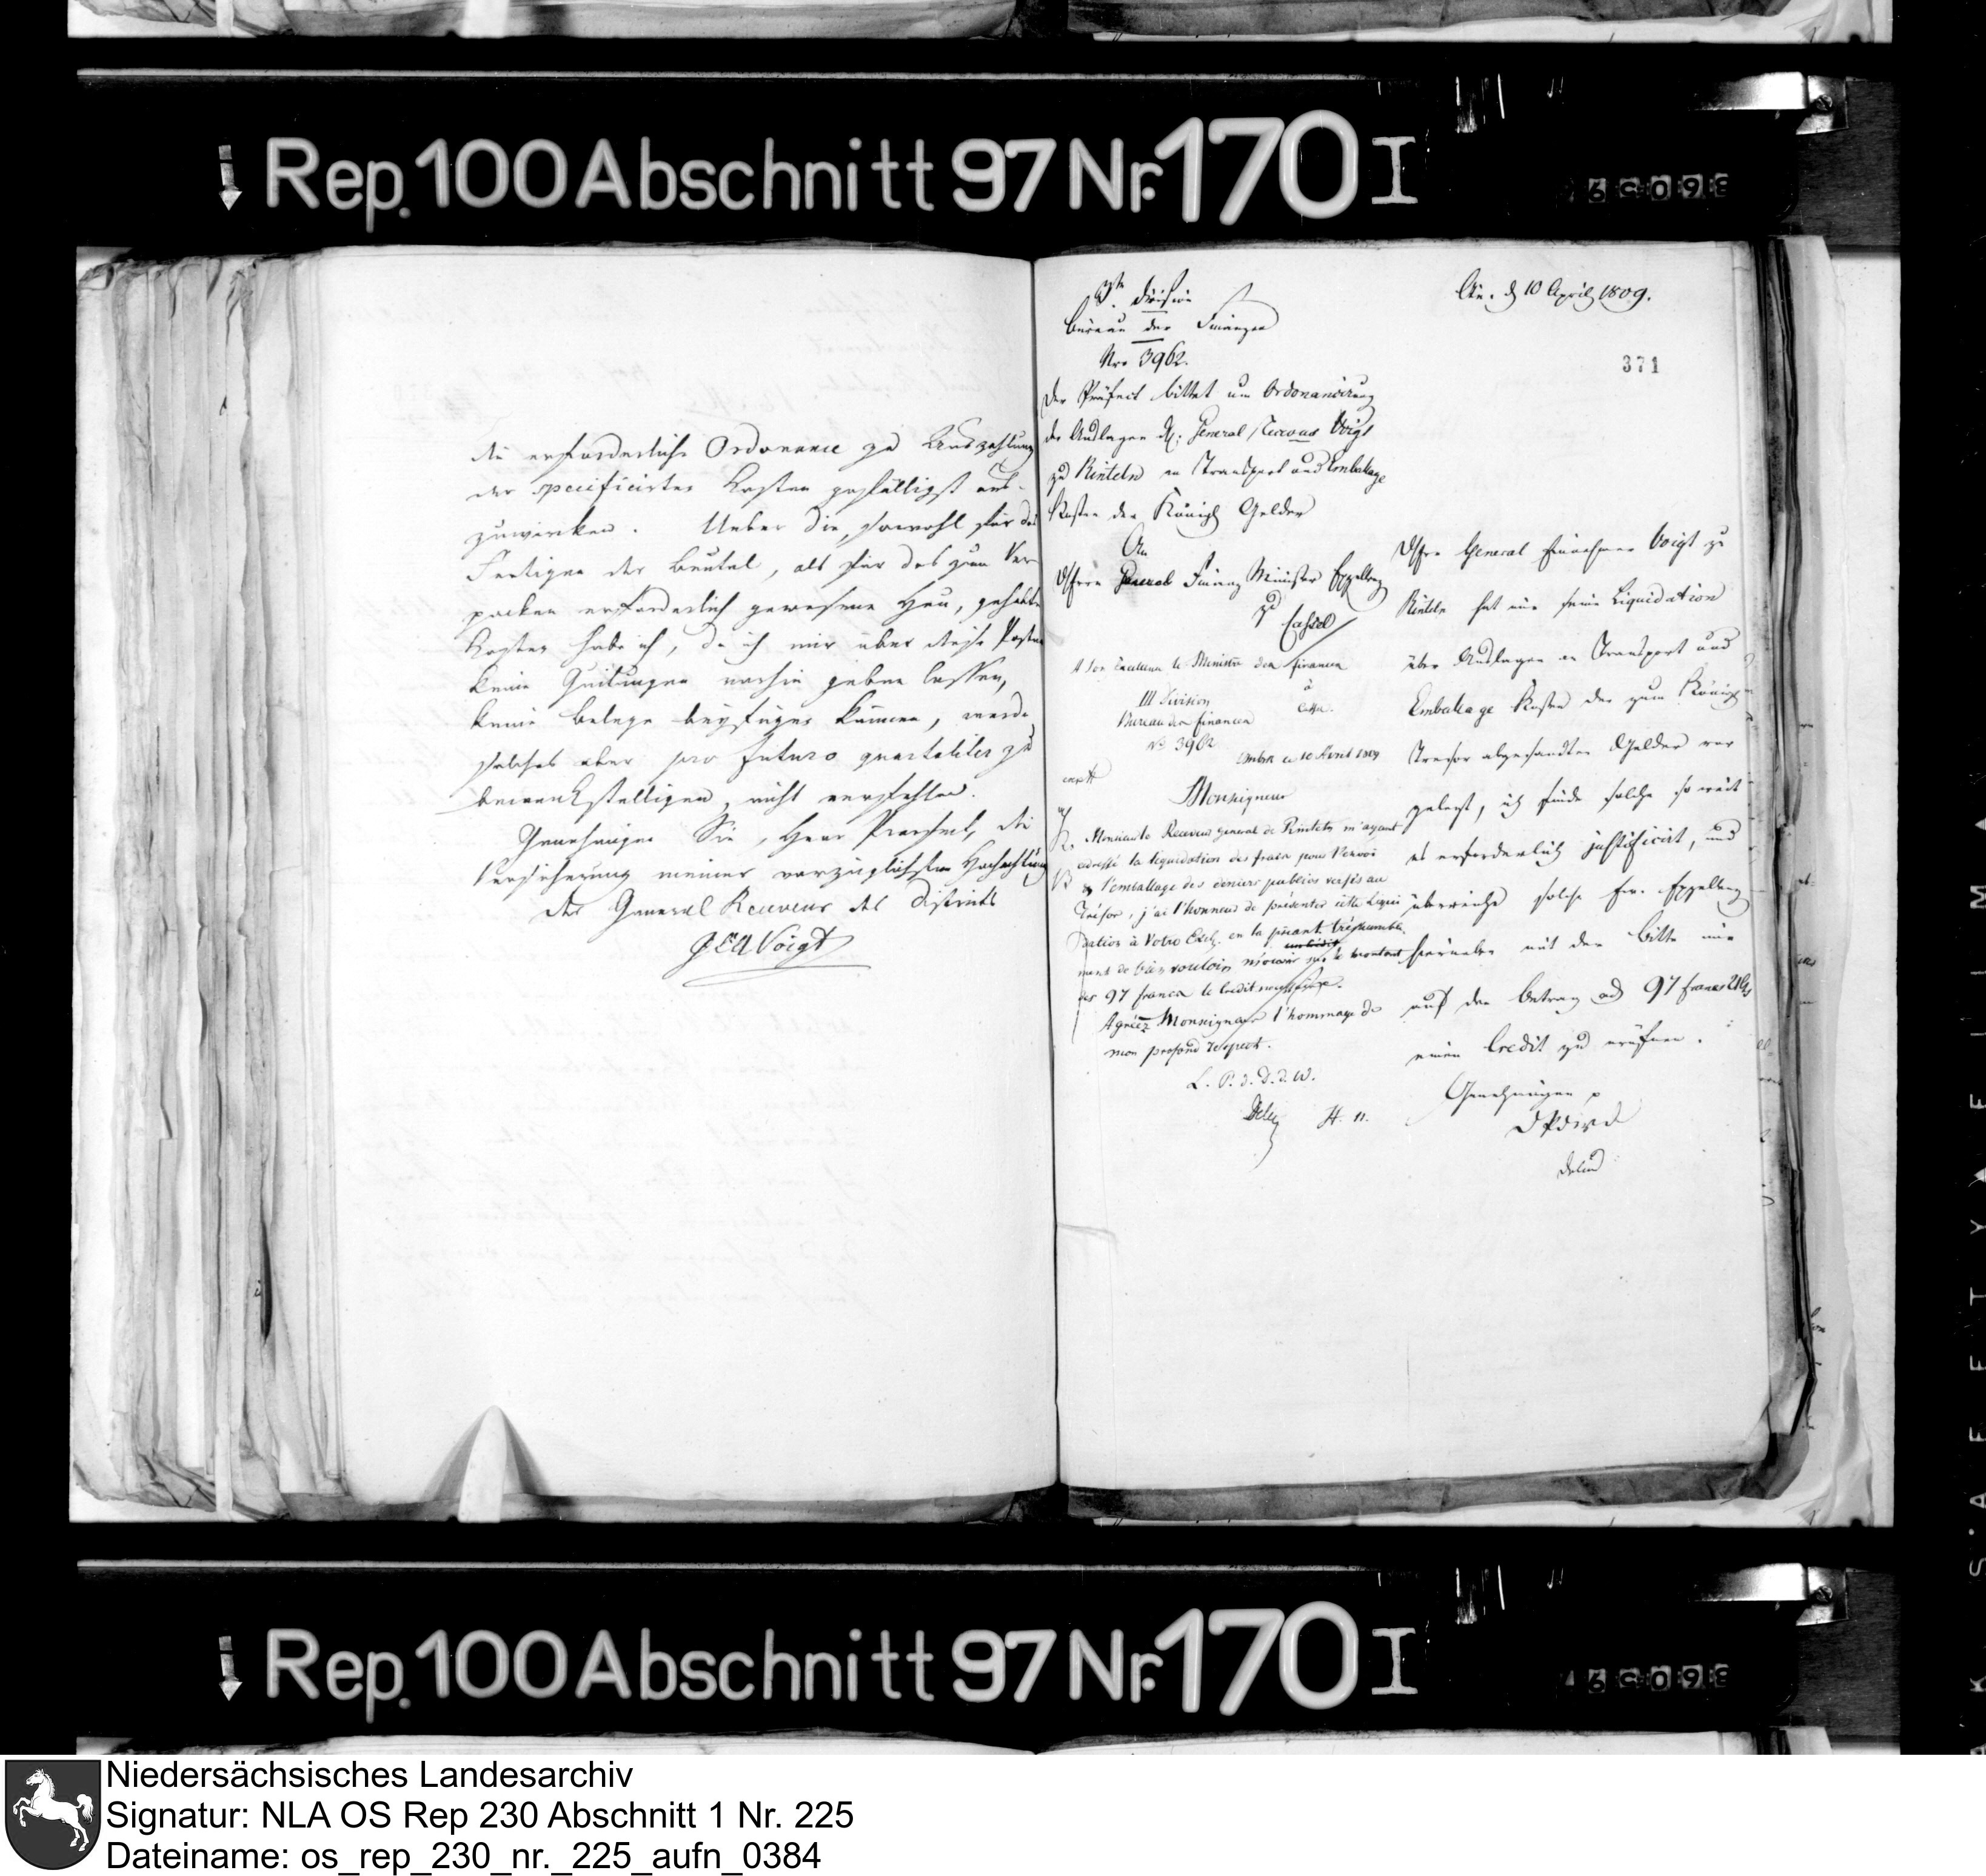 Rep. 100 Abschnitt 97 Nr. 170 I
die erforderliche Ordonance zu Auszahlung
der specificirten Kosten gefälligst aus-
zuwirken. Ueber die, sowohl für das
Fertigen der Beutel, als für das zum Ver-
packen erforderlich gewesene Heu, gehabte
Kosten habe ich, da ich mir über diese Posten
keine Quitungen vorhin geben lassen,
keine Belege beyfügen können, werde
solches aber pro futuro quartaliter zu
bewerkstelligen, nicht verfehlen.
Genehmigen Sie, Herr Praefect, die
Versicherung meiner vorzüglichsten Hochachtung
Der General Receveur des Districts
Voigt
3te Division
Bureau der Finanzen
Nro 3962.
d 10 April 1809.
371
Der Präfect bittet um Ordonancirung
der Auslagen des General Receveur Voigt
zu Rinteln an Transport und Emballage
Kosten der Königl Gelder
An
Herrn Finanz Minister Excellenz
zu Cassel
A Son Excellence le Ministre des finances
à
Cassel.
III Division
Bureau des finances
No 3962
ce 10 Avril 1809
Monseigneur
Monsieur le Receveur general de Rinteln m'ayant
adressé la liquidation des frais pour l'envoi
& l'emballage des deniers publics versés au
Trésor, j'ai l'honneur de présenter cette Liqui
dation à Votre Excl. en la priant très humble-
ment de bien vouloir m'ouvrir le montant
des 97 francs le Credit
Agréez Monseigneur l'hommage de
mon profond respect.
L. P. d. D. d. W.
Delius
Der General Einnehmer Voigt zu
Rinteln hat mir seine Liquidation
über Auslagen an Transport und
Emballage Kosten der zum Königl
Tresor abgesandten Gelder vor
gelegt, ich finde solche so weit
es erforderlich justificirt, und
überreiche solche Ew. Excellenz
hierneben mit der Bitte mir
auf den Betrag ad 97 francs
einen Credit zu eröfnen.
Genehmigen p
DPdWD
Delius
Rep. 100 Abschnitt 97 Nr. 170 I
Niedersächsisches Landesarchiv
Signatur: NLA OS Rep 230 Abschnitt 1 Nr. 225
Dateiname: os_rep_230_nr._225_aufn_0384